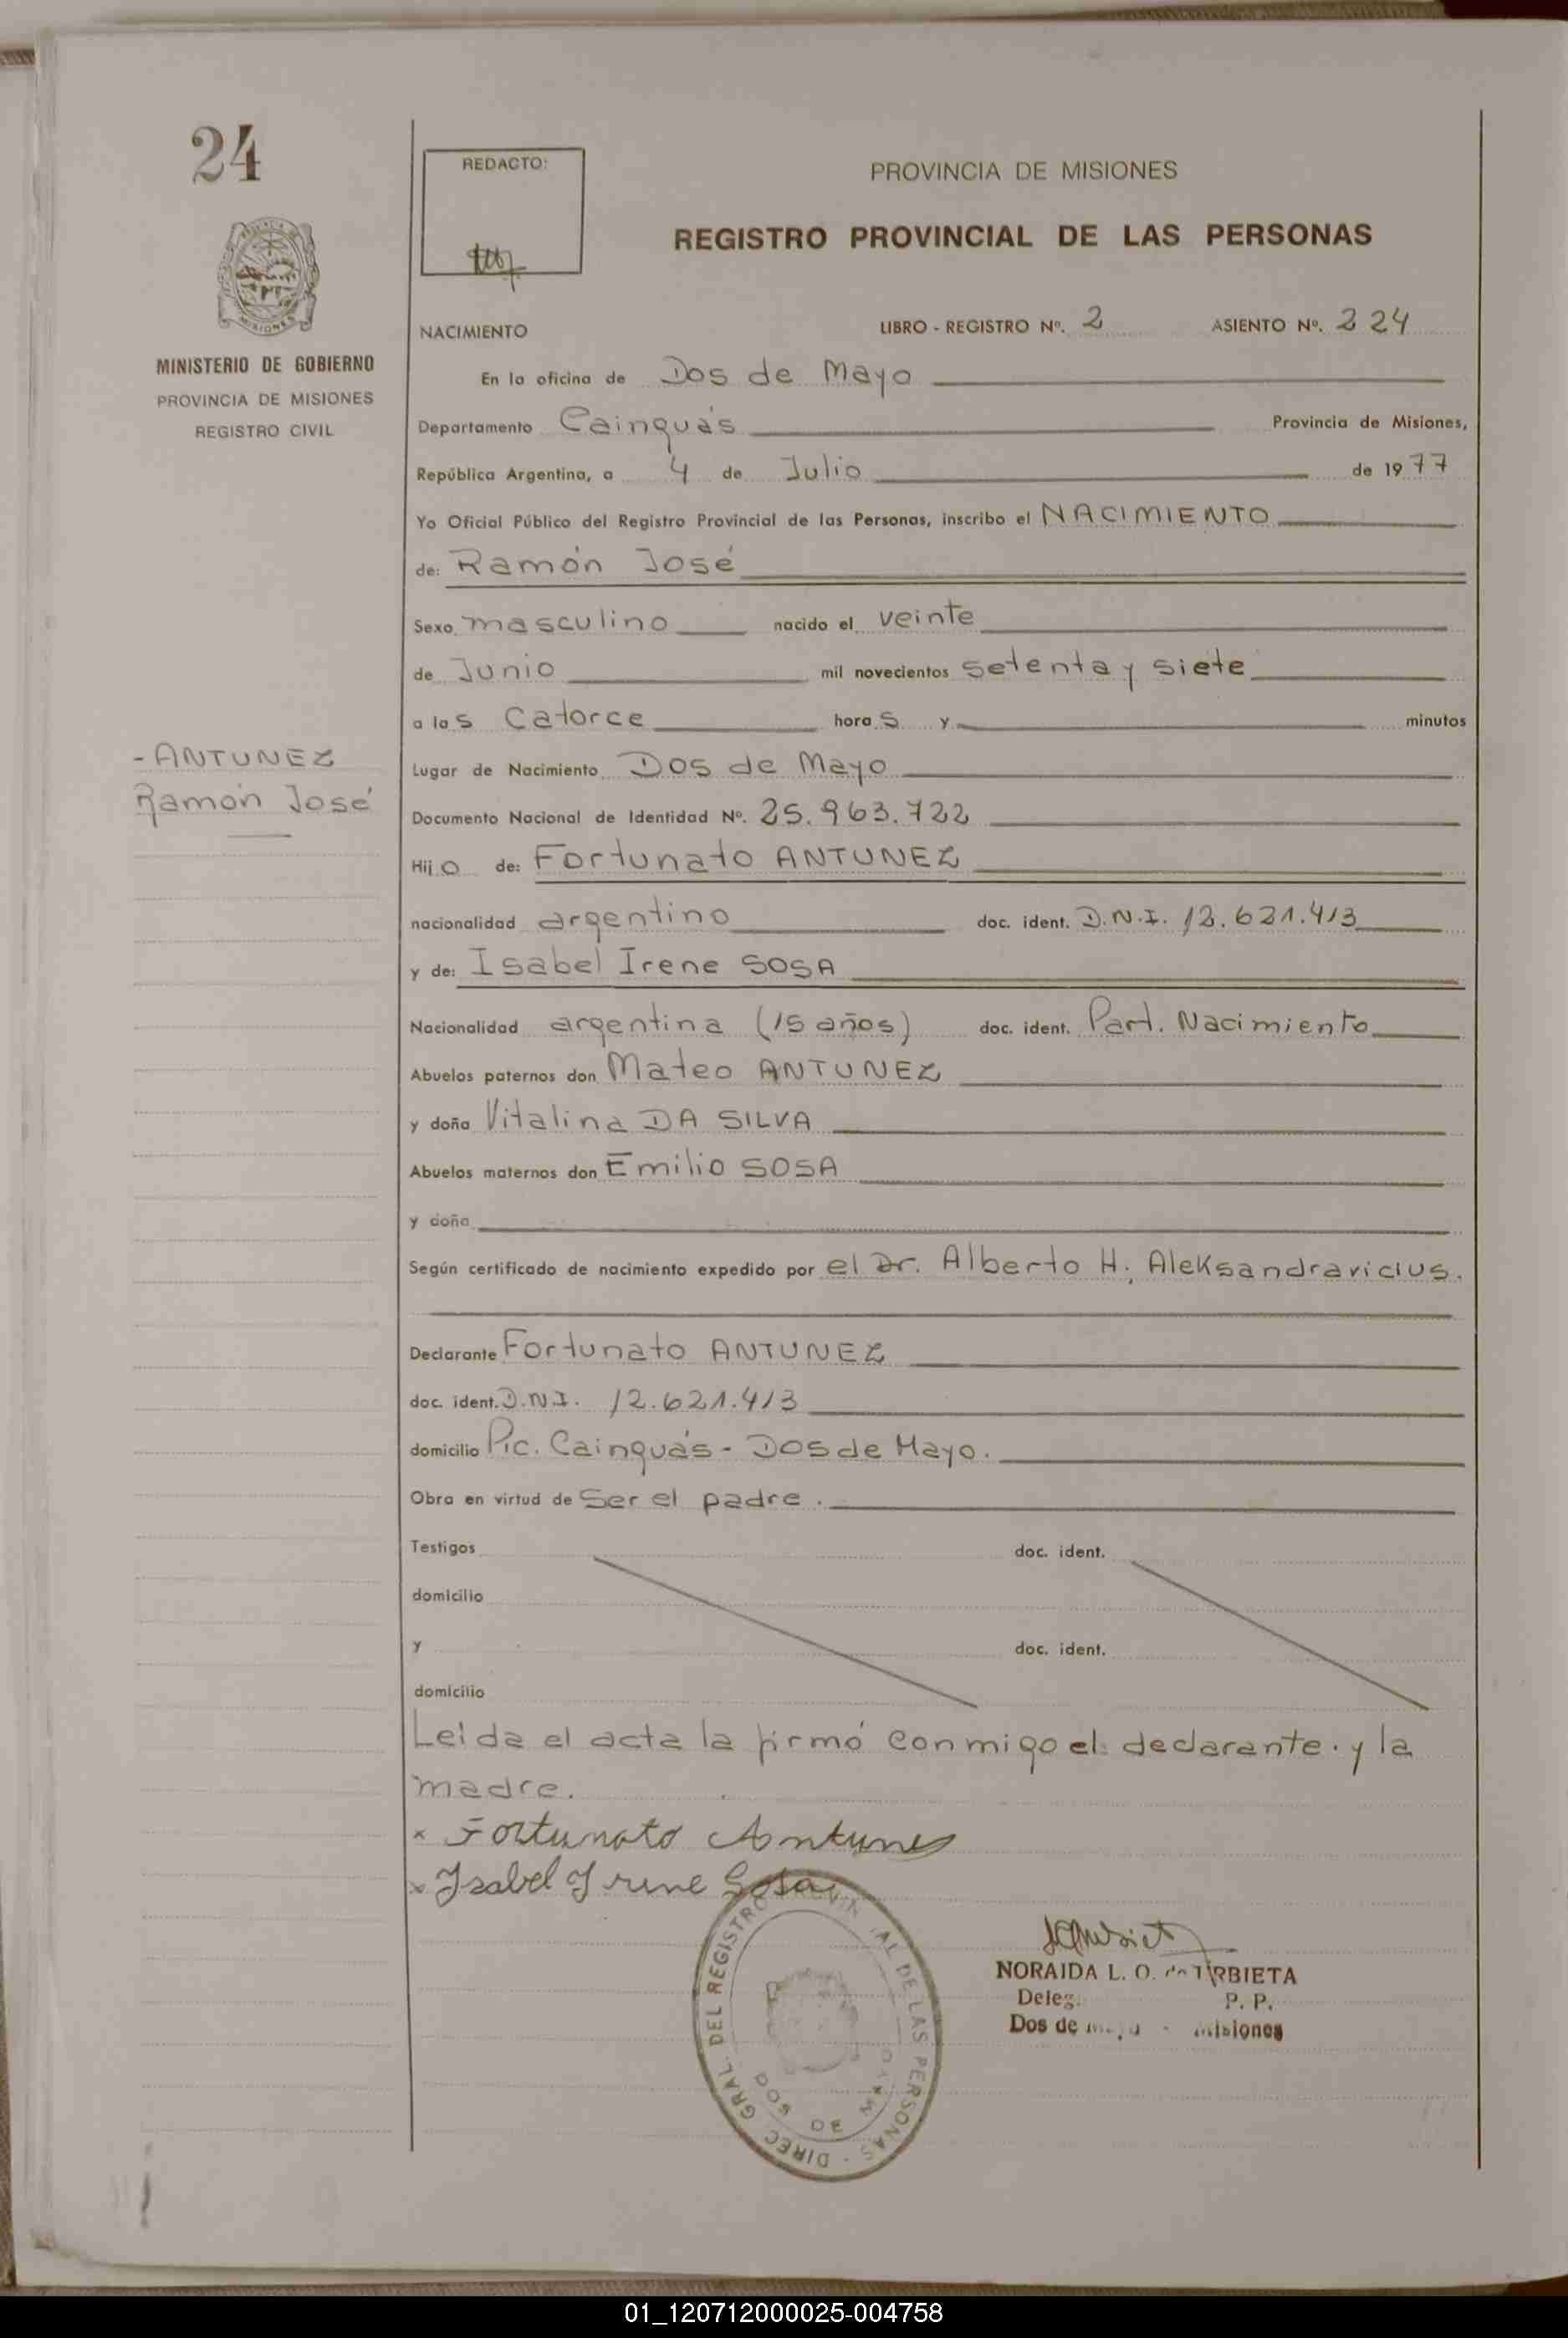 24
MINISTERIO DE GOBIERNO
PROVINCIA DE MISIONES
REGISTRO CIVIL
- ANTUNEZ
Ramón José
REDACTO:
PROVINCIA DE MISIONES
REGISTRO PROVINCIAL DE LAS PERSONAS
NACIMIENTO LIBRO - REGISTRO Nº. 2 ASIENTO Nº. 224
En la oficina de Dos de Mayo
Departamento Cainguás Provincia de Misiones,
República Argentina, a 4 de Julio de 1977
Yo Oficial Público del Registro Provincial de las Personas, inscribo el NACIMIENTO
de: Ramón José
Sexo masculino nacido el veinte
de Junio mil novecientos setenta y siete
a las Catorce horas y minutos
Lugar de Nacimiento Dos de Mayo
Documento Nacional de Identidad Nº. 25.963.722
Hijo de: Fortunato ANTUNEZ
nacionalidad argentino doc. ident. D.N.I. 12.621.413
y de: Isabel Irene SOSA
Nacionalidad argentina (15 años) doc. ident. Part. Nacimiento
Abuelos paternos don Mateo ANTUNEZ
y doña Vitalina DA SILVA
Abuelos maternos don Emilio SOSA
y doña
Según certificado de nacimiento expedido por el Dr. Alberto H. Aleksandravicius.
Declarante Fortunato ANTUNEZ
doc. ident. D.N.I. 12.621.413
domicilio Pic. Cainguás - Dos de Mayo.
Obra en virtud de Ser el padre.
Testigos doc. ident.
domicilio
y doc. ident.
domicilio
Leída el acta la firmó conmigo el declarante y la
madre.
x Fortunato Antunes
x Ysabel Yrene Sosa
DIREC. GRAL. DEL REGISTRO PROVINCIAL DE LAS PERSONAS -
DOS DE MAYO
NORAIDA L. O. de URBIETA
Deleg. P. P.
Dos de Mayo - Misiones
01_120712000025-004758